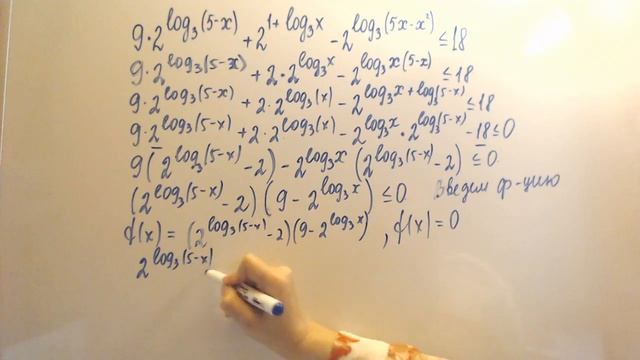 9·2^{log₃(5-x)} + 2^{1+log₃x} - 2^{log₃(5x-x²)} ≤ 18
9·2^{log₃(5-x)} + 2·2^{log₃x} - 2^{log₃x(5-x)} ≤ 18
9·2^{log₃(5-x)} + 2·2^{log₃(x)} - 2^{log₃x+log₃(5-x)} ≤ 18
9·2^{log₃(5-x)} + 2·2^{log₃(x)} - 2^{log₃x}·2^{log₃(5-x)} - 18 ≤ 0
9(2^{log₃(5-x)} - 2) - 2^{log₃x}(2^{log₃(5-x)} - 2) ≤ 0
(2^{log₃(5-x)} - 2)(9 - 2^{log₃x}) ≤ 0 Введем ф-цию
f(x) = (2^{log₃(5-x)} - 2)(9 - 2^{log₃x}), f(x) = 0
2^{log₃(5-x)}